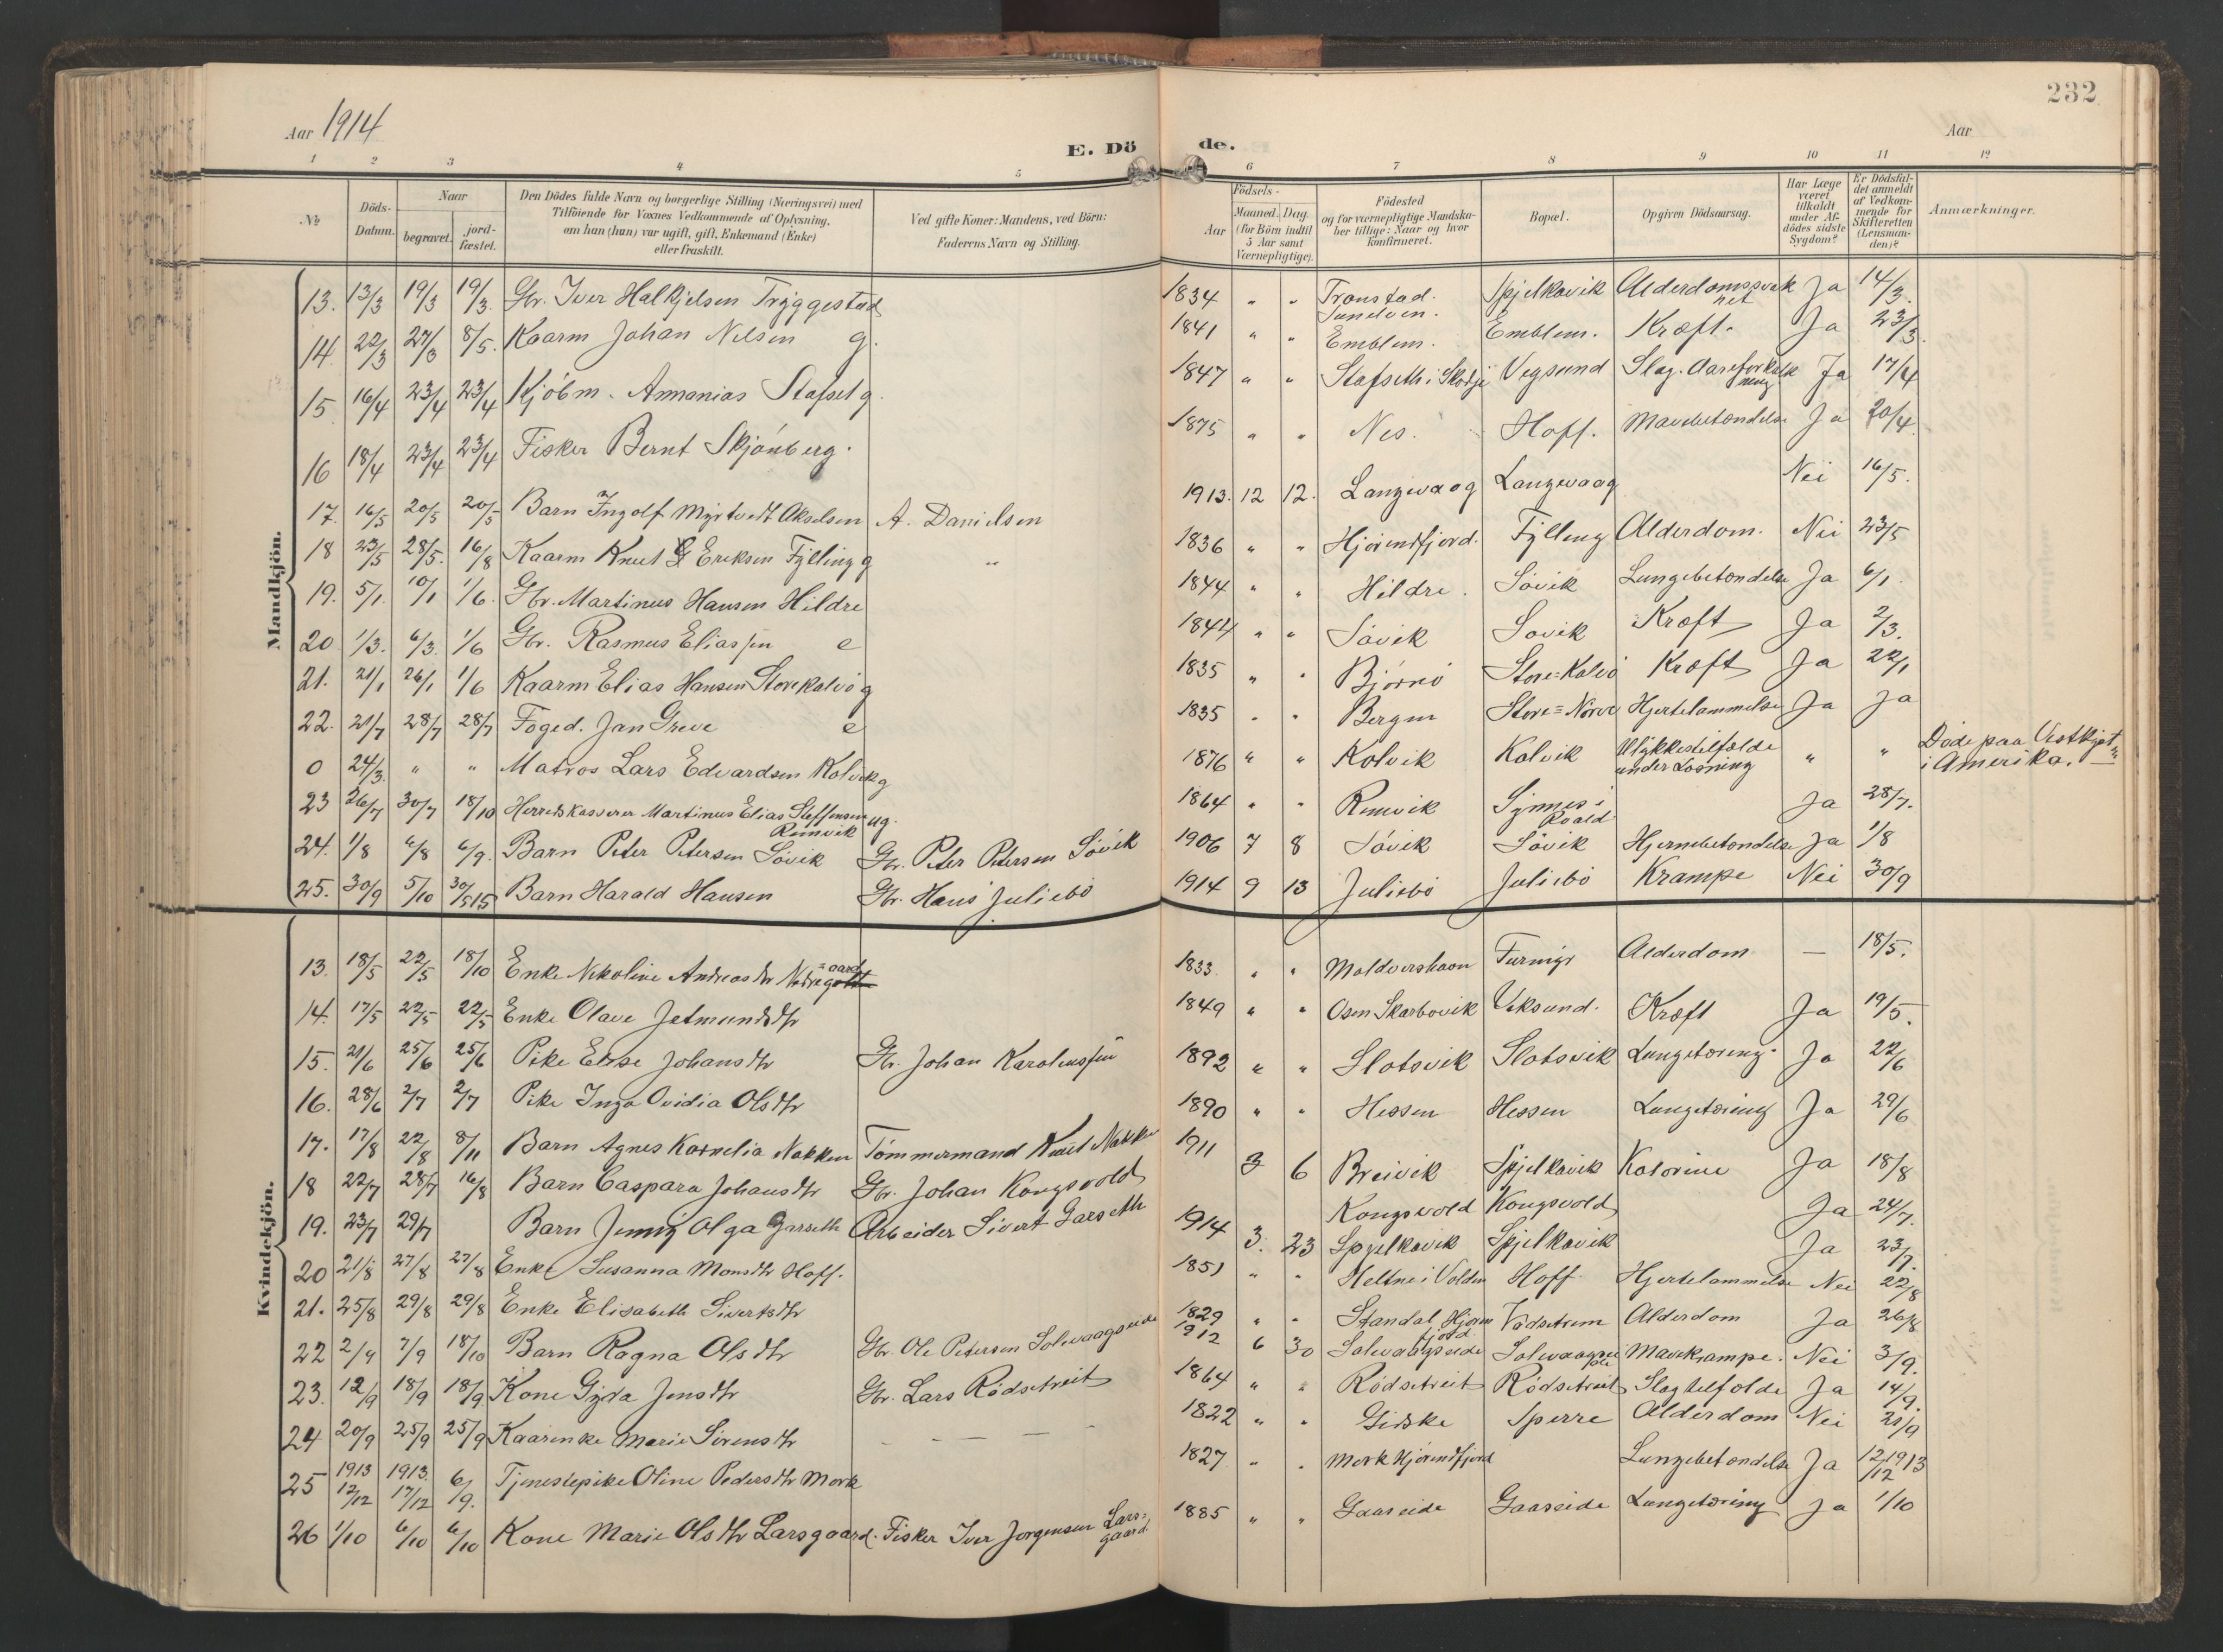 232
Aar 1914
Aar
E. Döde.
1 2 3 4 5 6 7 8 9 10 11 12
№
Döds-Datum.
Naar
begravet.
jord-fæstet.
Den Dödes fulde Navn og borgerlige Stilling (Næringsvei) med
Tilföiende for Voxnes Vedkommende af Oplysning,
om han (hun) var ugift, gift, Enkemand (Enke)
eller fraskilt.
Ved gifte Koner: Mandens, ved Börn:
Faderens Navn og Stilling.
Födsels-
Aar
Maaned. Dag.
(for Börn indtil
5 Aar samt
Værnepligtige).
Födested
og for værnepligtige Mandska-
ber tillige: Naar og hvor
konfirmeret.
Bopæl.
Opgiven Dödsaarsag.
Har Læge
været
tilkaldt
under Af-
dödes sidste
Sygdom?
Er Dödsfal-
det anmeldt
af Vedkom-
mende for
Skifteretten
(Lensman-
den)?
Anmærkninger.
Mandkjön.
13. 13/3 19/3 19/3. Gbr. Iver Halkjelsen Tryggestad 1834 " " Tronstad. Sunelven. Spjelkavik Alderdomssvak het Ja 14/3.
14 22/3 27/3 8/5. Kaarm Johan Nilsen g. 1841 " " Emblem. Emblem. Kræft. Ja 23/3.
15 16/4 23/4 23/4 Kjöbm. Annanias Stafset g. 1847 " " Stafseth i Skodje Vegsund Slag. Aareforkalk ning Ja 17/4
16 18/4 23/4 23/4 Fisker Bernt Skjönberg. 1875 " " Nes. Hoff. Mavebetændelse Ja 20/4
17. 16/5 20/5 20/5 Barn Ingolf Myrtvedt Akselsen A. Danielsen 1913. 12 12. Langevaag Langevaag Nei 16/5.
18 23/5 28/5. 16/8 Kaarm Knut Eriksen Fylling g " 1836 " " Hjörendfjord. Fylling Alderdom. Nei 23/5
19. 5/1. 10/1 1/6. Gbr. Martinus Hansen Hildre 1844 " " Hildre. Sövik Lungebetændelse Ja 6/1.
20 1/3. 6/3. 1/6 Gbr. Rasmus Eliassen e 1844 " " Sövik Sövik Kræft Ja 2/3.
21. 21/1 26/1 1/6 Kaarm Elias Hansen Storekalvö g 1835 " " Björnö Store=Kalvö Kræft Ja 22/1
22. 21/7 28/7 28/7 Foged. Jan Greve e 1835 " " Bergen Store=Nörve Hjertelammelse Ja Ja
0 24/3. " " Matros Lars Edvardsen Kolvik g 1876 " " Kolvik Kolvik Ulykkestilfælde under Losning " " Döde paa Vestkyst n i Amerika.
23 26/7 30/7 18/10 Herredskasserer Martinus Elias Steffensen Remvik ug. 1864 " " Remvik Synnes i Roald Ja 28/7.
24. 1/8 6/8 6/9. Barn Peter Petersen Sövik Gbr. Peter Petersen Sövik 1906 7 8 Sövik Sövik Hjernebetændelse Ja 1/8
25. 30/9 5/10 30/5 15 Barn Harald Hansen Gbr. Hans Juliebö 1914 9 13 Juliebö Juliebö Krampe Nei 30/9
Kvindekjön.
13. 18/5 22/5 18/10 Enke Nikoline Andreasdtr Nedregaard 1833. " " Moldværshavn Furmyr Alderdom — 18/5.
14. 17/5 22/5 22/5 Enke Olave Jetmundsdtr 1849 " " Osen Skarbövik Veksund. Kræft Ja 19/5.
15. 21/6 25/6 25/6 Pike Elise Johansdtr Gbr. Johan Karolinssen 1892 " " Slotsvik Slotsvik Lungetæring. Ja 22/6
16. 28/6 2/7 2/7 Pike Inga Ovidia Olsdtr 1890 " " Hessen Hessen Lungetæring Ja 29/6
17. 17/8 22/8 8/11 Barn Agnes Kornelia Nakken Tömmermand Knut Nakke 1911 3 6 Breivik Spjelkavik Kolorine Ja 18/8
18 22/7 28/7 16/8 Barn Caspara Johansdtr Gbr. Johan Kongsvold Kongsvold Kongsvold Ja 24/7.
19. 23/7 29/7 Barn Jenny Olga Garseth Arbeider Sivert Garseth 1914 3. 23 Spjelkavik Spjelkavik Ja 23/7.
20 21/8 27/8 27/8 Enke Susanna Monsdtr Hoff. 1851 " " Heltne i Volden Hoff Hjertelammelse Nei 22/8
21. 25/8 29/8 29/8 Enke Elisabeth Sivertsdtr 1829 " " Standal Hjörendfjord Vadsetrem Alderdom Ja 26/8
22 2/9 7/9 18/10 Barn Ragna Olsdtr Gbr. Ole Petersen Solevaagseide 1912 6 30 Solevaagseide Solevaagseide Mavekrampe. Nei 3/9.
23. 12/9 18/9 18/9 Kone Gyda Jensdtr Gbr. Lars Rödsetreit 1864 " " Rödsetreit Rödsetreit Slagtilfælde Ja 14/9.
24 20/9 25/9 25/9 Kaarenke Marie Sörensdtr - — — — 1822 " " Gidske Sperre Alderdom Nei 21/9
25 1913 12/12 1913. 17/12 6/9. Tjenestepike Oline Pedersdtr Mork 1827 " " Mork Hjörendfjord Lungebetændelse Ja 12/12 1913
26 1/10 6/10 6/10 Kone Marie Olsdtr Larsgaard. Fisker Iver Jorgensen Lars=gaard. 1885 " " Gaaseide Gaaseide Lungetæring Ja 1/10